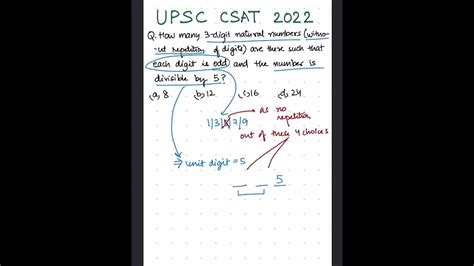 UPSC CSAT 2022
Q. How many 3-digit natural numbers (witho-
-ut repetition of digits) are there such that
each digit is odd and the number is
divisible by 5?
a, 8 b, 12 c, 16 d, 24
1/3/5/7/9 as no
repetition
out of these 4 choices
⇒ unit digit = 5
_ _ 5